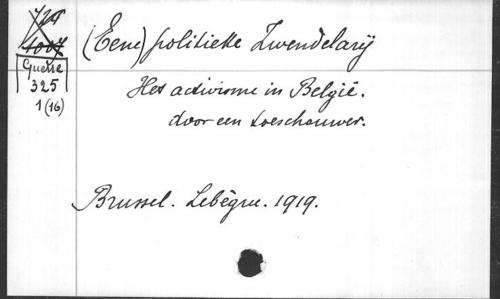 729
1007
Guerre
325
1 (16)
(Eene) politieke Zwendelarij
Het activisme in België.
door een toeschouwer.
Brussel. Lebègue. 1919.